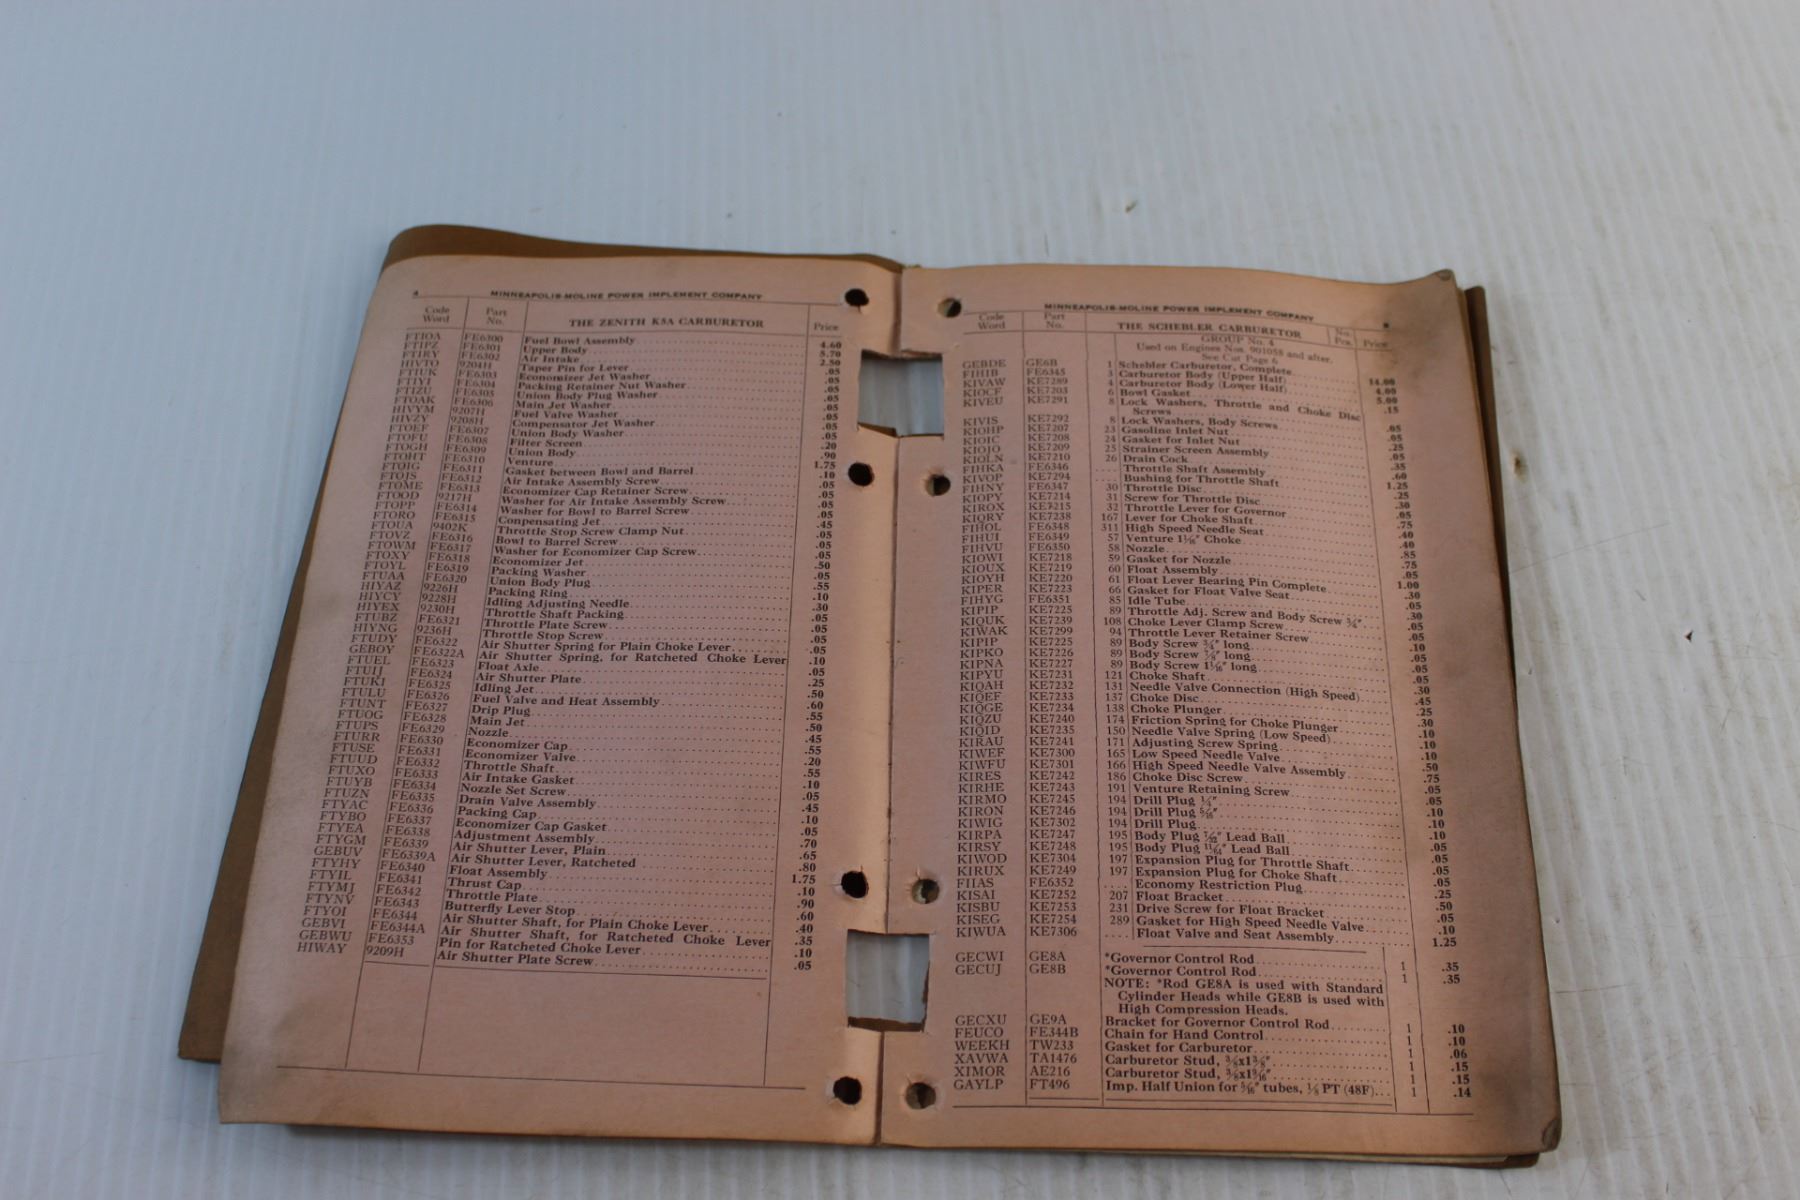 4 MINNEAPOLIS-MOLINE POWER IMPLEMENT COMPANY
Code Word Part No. THE ZENITH K5A CARBURETOR Price
FTIOA FE6300 Fuel Bowl Assembly 4.60
FTIPZ FE6301 Upper Body 5.70
FTIRY FE6302 Air Intake 2.50
HIVTO 9204H Taper Pin for Lever .05
FTIUK FE6303 Economizer Jet Washer .05
FTIYI FE6304 Packing Retainer Nut Washer .05
FTIZU FE6305 Union Body Plug Washer .05
FTOAK FE6306 Main Jet Washer .05
HIVYM 9207H Fuel Valve Washer .05
HIVZY 9208H Compensator Jet Washer .05
FTOEF FE6307 Union Body Washer .05
FTOFU FE6308 Filter Screen .20
FTOGH FE6309 Union Body .90
FTOHT FE6310 Venture 1.75
FTOIG FE6311 Gasket between Bowl and Barrel .10
FTOJS FE6312 Air Intake Assembly Screw .05
FTOME FE6313 Economizer Cap Retainer Screw .05
FTOOD 9217H Washer for Air Intake Assembly Screw .05
FTOPP FE6314 Washer for Bowl to Barrel Screw .05
FTORO FE6315 Compensating Jet .45
FTOUA 9402K Throttle Stop Screw Clamp Nut .05
FTOVZ FE6316 Bowl to Barrel Screw .05
FTOWM FE6317 Washer for Economizer Cap Screw .05
FTOXY FE6318 Economizer Jet .50
FTOYL FE6319 Packing Washer .05
FTUAA FE6320 Union Body Plug .55
HIYAZ 9226H Packing Ring .10
HIYCY 9228H Idling Adjusting Needle .30
HIYEX 9230H Throttle Shaft Packing .05
FTUBZ FE6321 Throttle Plate Screw .05
HIYNG 9236H Throttle Stop Screw .05
FTUDY FE6322 Air Shutter Spring for Plain Choke Lever .05
GEBOY FE6322A Air Shutter Spring, for Ratcheted Choke Lever .10
FTUEL FE6323 Float Axle .05
FTUIJ FE6324 Air Shutter Plate .25
FTUKI FE6325 Idling Jet .50
FTULU FE6326 Fuel Valve and Heat Assembly .60
FTUNT FE6327 Drip Plug .55
FTUOG FE6328 Main Jet .50
FTUPS FE6329 Nozzle .45
FTURR FE6330 Economizer Cap .55
FTUSE FE6331 Economizer Valve .20
FTUUD FE6332 Throttle Shaft .55
FTUXO FE6333 Air Intake Gasket .10
FTUYB FE6334 Nozzle Set Screw .05
FTUZN FE6335 Drain Valve Assembly .45
FTYAC FE6336 Packing Cap .10
FTYBO FE6337 Economizer Cap Gasket .05
FTYEA FE6338 Adjustment Assembly .70
FTYGM FE6339 Air Shutter Lever, Plain .65
GEBUV FE6339A Air Shutter Lever, Ratcheted .80
FTYHY FE6340 Float Assembly 1.75
FTYIL FE6341 Thrust Cap .10
FTYMJ FE6342 Throttle Plate .90
FTYNV FE6343 Butterfly Lever Stop .60
FTYOI FE6344 Air Shutter Shaft, for Plain Choke Lever .40
GEBVI FE6344A Air Shutter Shaft, for Ratcheted Choke Lever .35
GEBWU FE6353 Pin for Ratcheted Choke Lever .10
HIWAY 9209H Air Shutter Plate Screw .05
MINNEAPOLIS-MOLINE POWER IMPLEMENT COMPANY
Code Word Part No. THE SCHEBLER CARBURETOR No. Pcs. Price
GROUP No. 4
Used on Engines Nos. 901058 and after.
See Cut Page 6
GEBDE GE6B 1 Schebler Carburetor, Complete 14.00
FIHIB FE6345 3 Carburetor Body (Upper Half) 4.00
KIVAW KE7289 4 Carburetor Body (Lower Half) 5.00
KIOCF KE7203 6 Bowl Gasket .15
KIVEU KE7291 8 Lock Washers, Throttle and Choke Disc
Screws .05
KIVIS KE7292 8 Lock Washers, Body Screws .05
KIOHP KE7207 23 Gasoline Inlet Nut .25
KIOIC KE7208 24 Gasket for Inlet Nut .05
KIOJO KE7209 25 Strainer Screen Assembly .35
KIOLN KE7210 26 Drain Cock .60
FIHKA FE6346 Throttle Shaft Assembly 1.25
KIVOP KE7294 Bushing for Throttle Shaft .25
FIHNY FE6347 30 Throttle Disc .30
KIOPY KE7214 31 Screw for Throttle Disc .05
KIROX KE7215 32 Throttle Lever for Governor .75
KIQRY KE7238 167 Lever for Choke Shaft .40
FIHOL FE6348 311 High Speed Needle Seat .40
FIHUI FE6349 57 Venture 1 1/16" Choke .85
FIHVU FE6350 58 Nozzle .75
KIOWI KE7218 59 Gasket for Nozzle .05
KIOUX KE7219 60 Float Assembly 1.00
KIOYH KE7220 61 Float Lever Bearing Pin Complete .30
KIPER KE7223 66 Gasket for Float Valve Seat .05
FIHYG FE6351 85 Idle Tube .30
KIPIP KE7225 89 Throttle Adj. Screw and Body Screw 3/4" .05
KIQUK KE7239 108 Choke Lever Clamp Screw .05
KIWAK KE7299 94 Throttle Lever Retainer Screw .10
KIPIP KE7225 89 Body Screw 3/4" long .05
KIPKO KE7226 89 Body Screw 7/8" long .05
KIPNA KE7227 89 Body Screw 1 1/16" long .05
KIPYU KE7231 121 Choke Shaft .30
KIQAH KE7232 131 Needle Valve Connection (High Speed) .45
KIQEF KE7233 137 Choke Disc .25
KIQGE KE7234 138 Choke Plunger .30
KIQZU KE7240 174 Friction Spring for Choke Plunger .10
KIQID KE7235 150 Needle Valve Spring (Low Speed) .10
KIRAU KE7241 171 Adjusting Screw Spring .10
KIWEF KE7300 165 Low Speed Needle Valve .50
KIWFU KE7301 166 High Speed Needle Valve Assembly .75
KIRES KE7242 186 Choke Disc Screw .05
KIRHE KE7243 191 Venture Retaining Screw .05
KIRMO KE7245 194 Drill Plug 1/4" .10
KIRON KE7246 194 Drill Plug 5/16" .10
KIWIG KE7302 194 Drill Plug .10
KIRPA KE7247 195 Body Plug 7/32" Lead Ball .05
KIRSY KE7248 195 Body Plug 11/64" Lead Ball .05
KIWOD KE7304 197 Expansion Plug for Throttle Shaft .05
KIRUX KE7249 197 Expansion Plug for Choke Shaft .05
FIIAS FE6352 Economy Restriction Plug .25
KISAI KE7252 207 Float Bracket .50
KISBU KE7253 231 Drive Screw for Float Bracket .05
KISEG KE7254 289 Gasket for High Speed Needle Valve .10
KIWUA KE7306 Float Valve and Seat Assembly 1.25
GECWI GE8A *Governor Control Rod 1 .35
GECUJ GE8B *Governor Control Rod 1 .35
NOTE: *Rod GE8A is used with Standard
Cylinder Heads while GE8B is used with
High Compression Heads.
GECXU GE9A Bracket for Governor Control Rod 1 .10
FEUCO FE344B Chain for Hand Control 1 .10
WEEKH TW233 Gasket for Carburetor 1 .06
XAVWA TA1476 Carburetor Stud, 3/8x1 3/8" 1 .15
XIMOR AE216 Carburetor Stud, 3/8x1 9/16" 1 .15
GAYLP FT496 Imp. Half Union for 5/16" tubes, 1/8 PT (48F) 1 .14